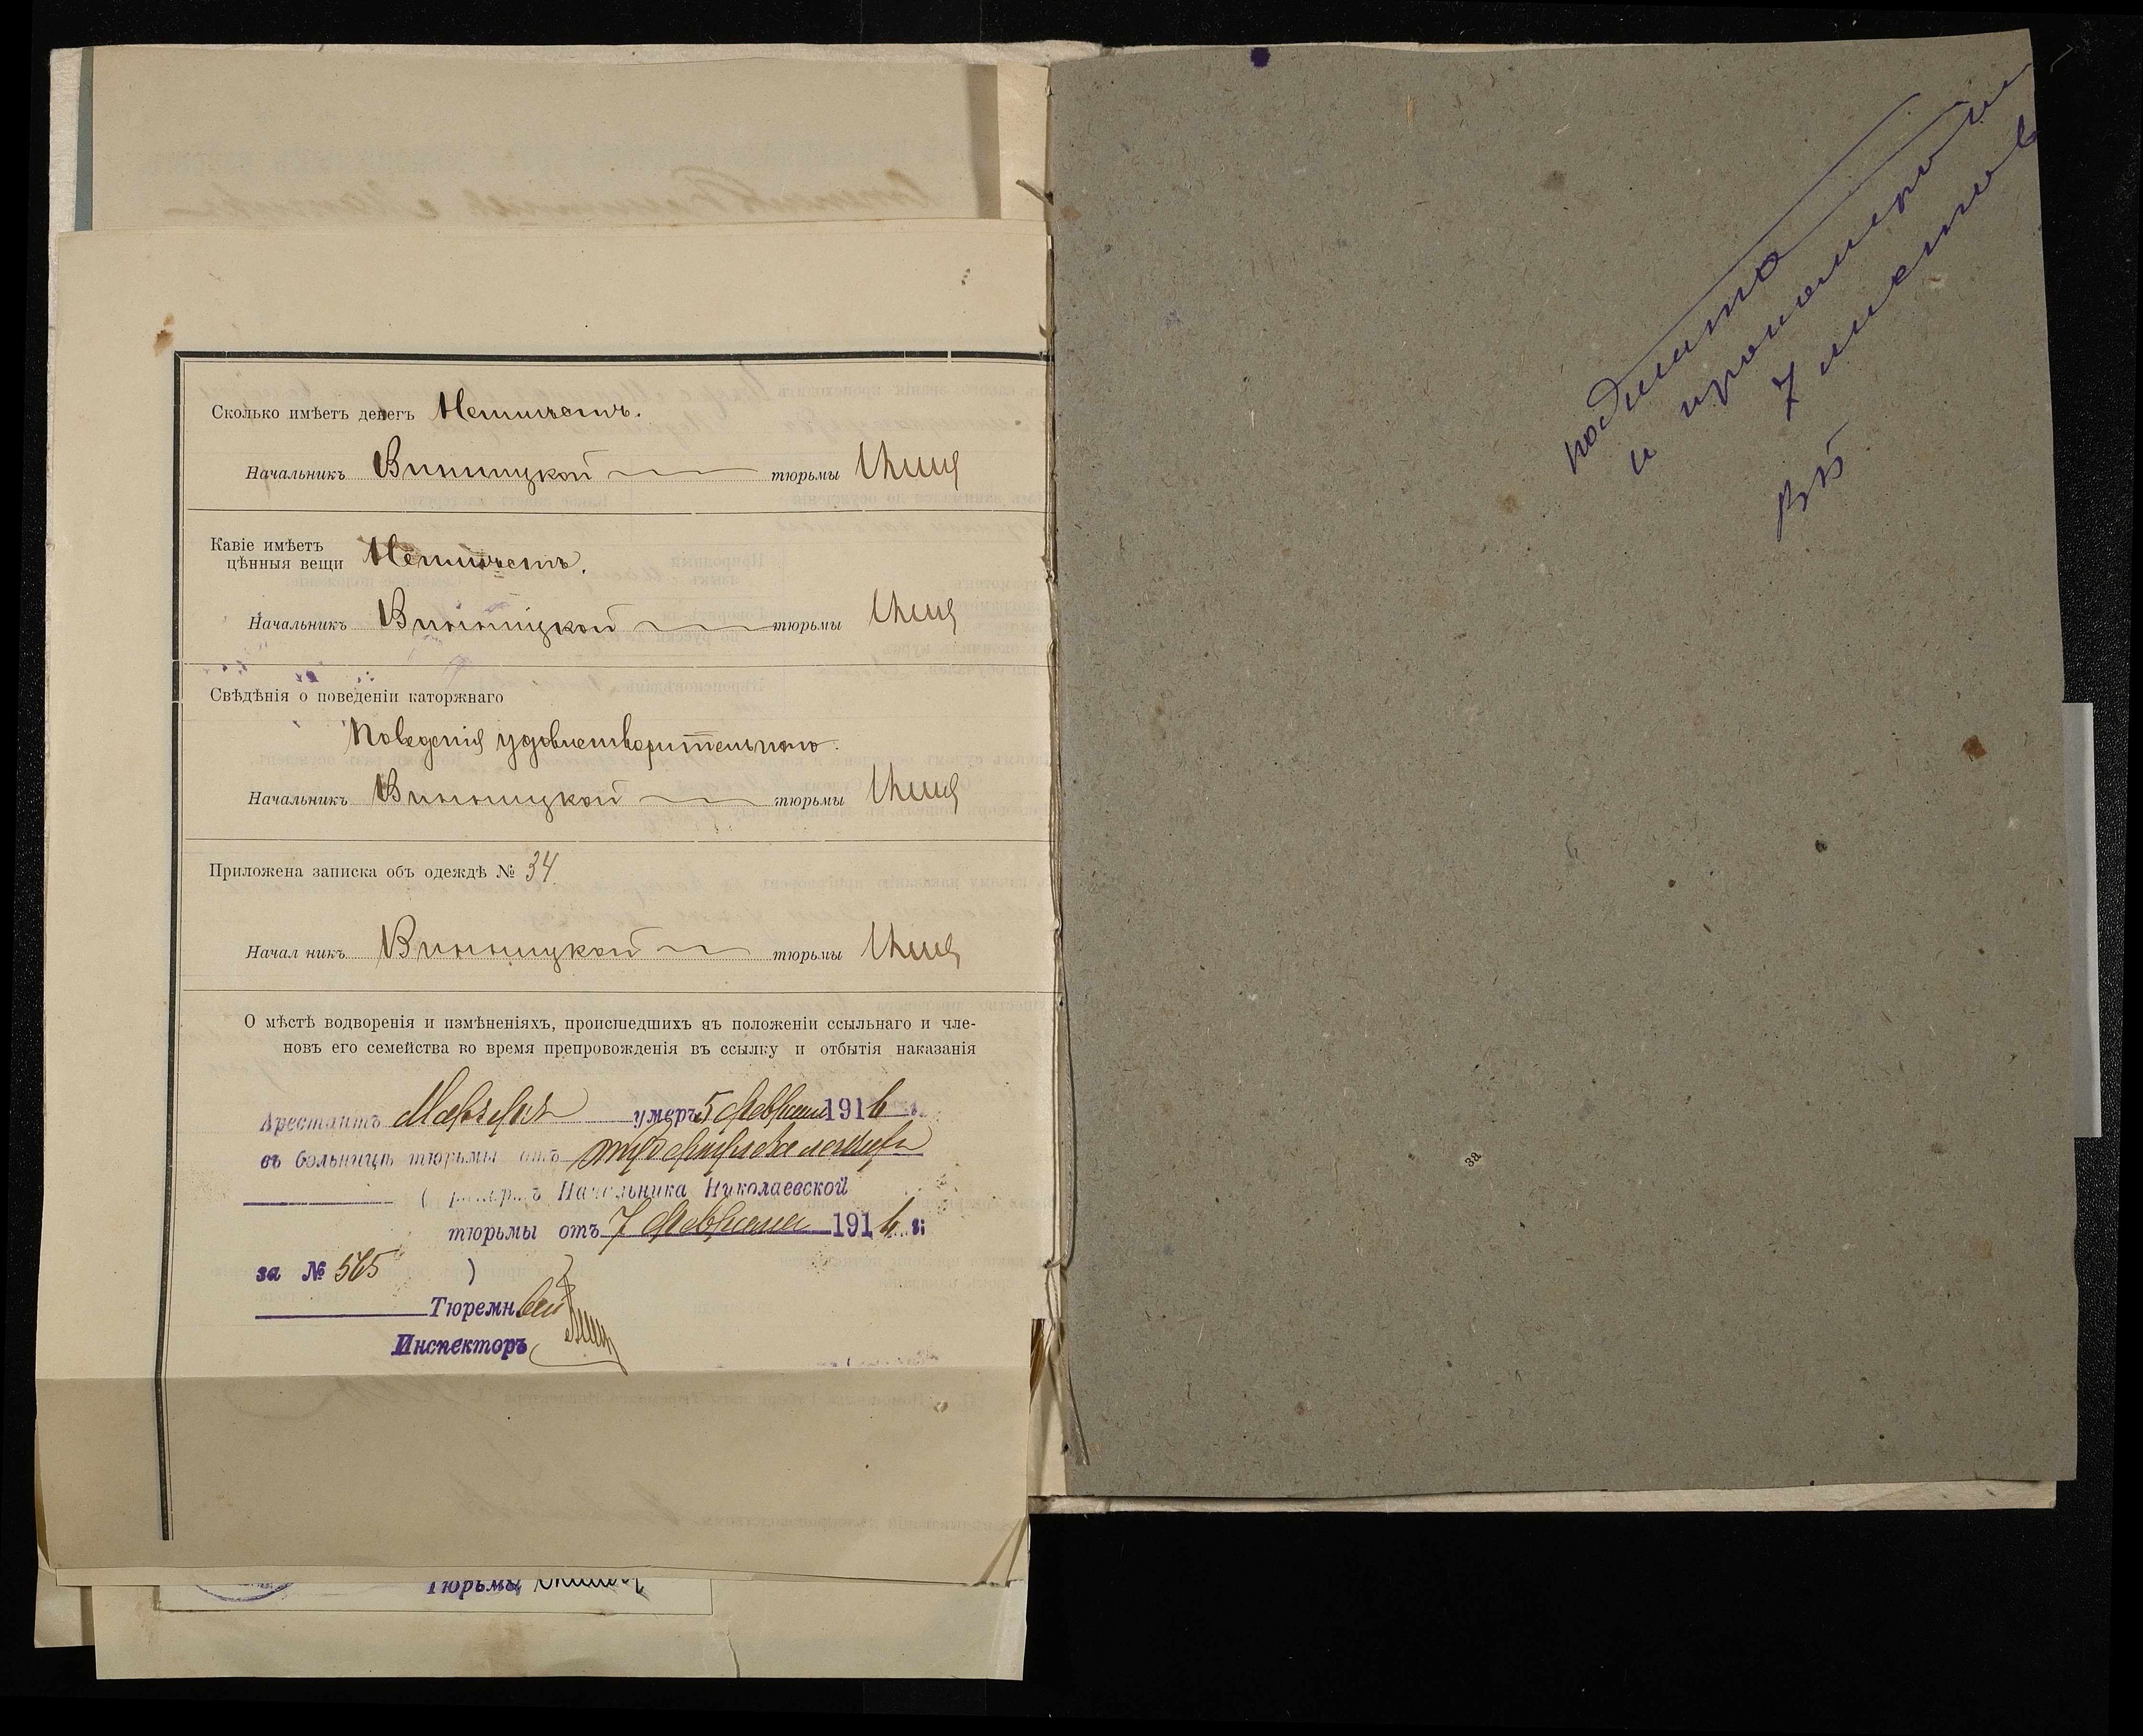 Сколько имѣетъ денегъ Неимѣетъ.
Начальникъ Винницкой тюрьмы
Кавіе имѣетъ
цѣнныя вещи Неимѣетъ.
Начальникъ Винницкой тюрьмы
Свѣдѣнія о поведеніи каторжнаго
Поведенія удовлетворительнаго.
Начальникъ Винницкой тюрьмы
Приложена записка объ одеждѣ № 34
Начал никъ Винницкой тюрьмы
О мѣстѣ водворенія и измѣненіяхъ, происшедшихъ въ положеніи ссыльнаго и чле-
новъ его семейства во время препровожденія въ ссылку и отбытія наказанія
Арестантъ умеръ 5 февраля 1916 г.
въ больницѣ тюрьмы отъ
( Начальника Николаевской
тюрьмы отъ 7 февраля 1916 г.
за № 565 )
Тюремный
Инспекторъ
Тюрьмы
подшито
и пронумеровано
7 листов
за